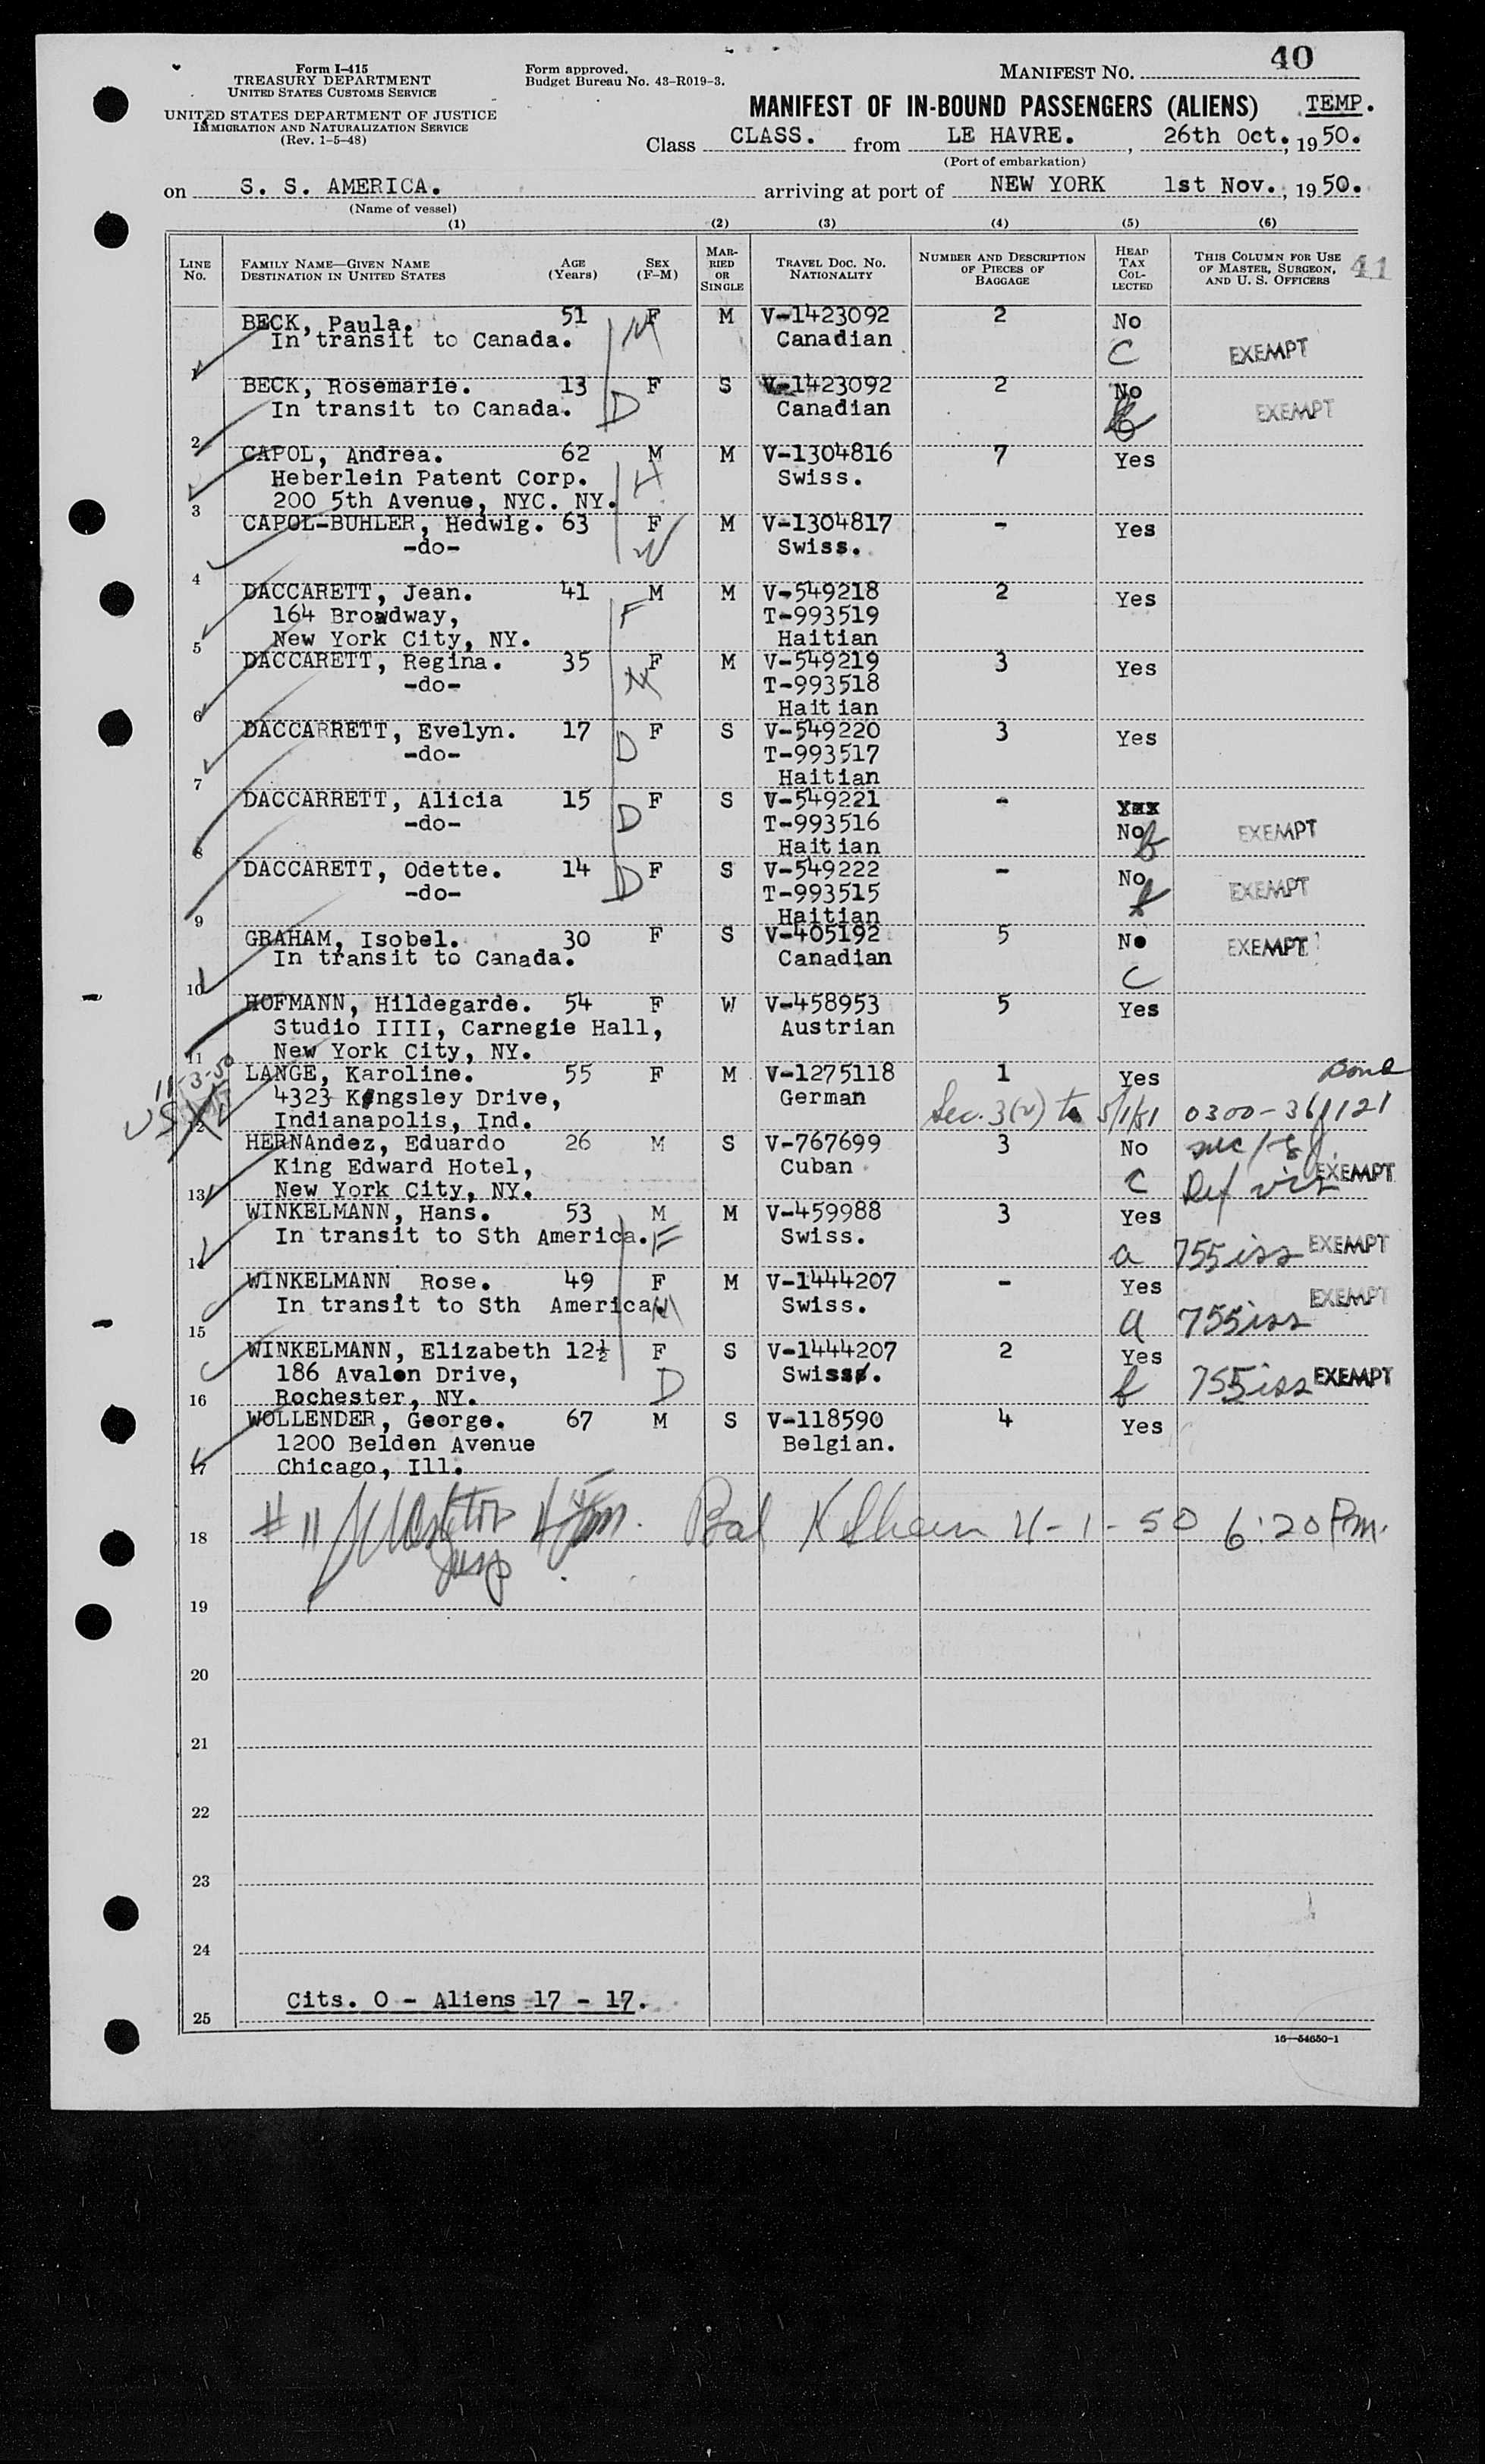 Form I-415
TREASURY DEPARTMENT
UNITED STATES CUSTOMS SERVICE
UNITED STATES DEPARTMENT OF JUSTICE
IMMIGRATION AND NATURALIZATION SERVICE
(Rev. 1-5-48)
Form approved.
Budget Bureau No. 43-R019-3.
MANIFEST NO. 40
MANIFEST OF IN-BOUND PASSENGERS (ALIENS) TEMP.
Class CLASS. from LE HAVRE., 26th Oct., 1950.
(Port of embarkation)
on S. S. AMERICA. arriving at port of NEW YORK 1st Nov., 1950.
(Name of vessel)
(1) (2) (3) (4) (5) (6)
LINE No. FAMILY NAME—GIVEN NAME DESTINATION IN UNITED STATES AGE (Years) SEX (F-M) MARRIED OR SINGLE TRAVEL DOC. NO. NATIONALITY NUMBER AND DESCRIPTION OF PIECES OF BAGGAGE HEAD TAX COLLECTED THIS COLUMN FOR USE OF MASTER, SURGEON, AND U. S. OFFICERS 41
BECK, Paula. 51 F M V-1423092 2 No
In transit to Canada. M Canadian C EXEMPT
1
BECK, Rosemarie. 13 F S V-1423092 2 No
In transit to Canada. D Canadian EXEMPT
2
CAPOL, Andrea. 62 M M V-1304816 7 Yes
Heberlein Patent Corp. H Swiss.
3 200 5th Avenue, NYC. NY.
CAPOL-BUHLER, Hedwig. 63 F M V-1304817 - Yes
-do- W Swiss.
4
DACCARETT, Jean. 41 M M V-549218 2 Yes
164 Broadway, F T-993519
5 New York City, NY. Haitian
DACCARETT, Regina. 35 F M V-549219 3 Yes
-do- M T-993518
6 Haitian
DACCARRETT, Evelyn. 17 F S V-549220 3 Yes
-do- D T-993517
7 Haitian
DACCARRETT, Alicia 15 F S V-549221 - Yes
-do- D T-993516 No EXEMPT
8 Haitian
DACCARETT, Odette. 14 F S V-549222 - No
-do- D T-993515 EXEMPT
9 Haitian
GRAHAM, Isobel. 30 F S V-405192 5 No EXEMPT
In transit to Canada. Canadian C
10
HOFMANN, Hildegarde. 54 F W V-458953 5 Yes
Studio IIII, Carnegie Hall, Austrian
11 New York City, NY.
11-3-50 LANGE, Karoline. 55 F M V-1275118 1 Yes
4323 Kingsley Drive, German Sec. 3(2) to 5/1/51 0300-361121
12 Indianapolis, Ind.
HERNAndez, Eduardo 26 M S V-767699 3 No
King Edward Hotel, Cuban C EXEMPT
13 New York City, NY.
WINKELMANN, Hans. 53 M M V-459988 3 Yes
In transit to Sth America. F Swiss. a 755iss EXEMPT
14
WINKELMANN, Rose. 49 F M V-1444207 - Yes EXEMPT
In transit to Sth America. M Swiss. a 755iss
15
WINKELMANN, Elizabeth 12½ F S V-1444207 2 Yes
186 Avalon Drive, D Swiss. 755iss EXEMPT
16 Rochester, NY.
WOLLENDER, George. 67 M S V-118590 4 Yes
1200 Belden Avenue Belgian.
17 Chicago, Ill.
18 #11 11-1-50 6:20 Pm.
19
20
21
22
23
24
Cits. 0 - Aliens 17 - 17.
25
16—54650-1